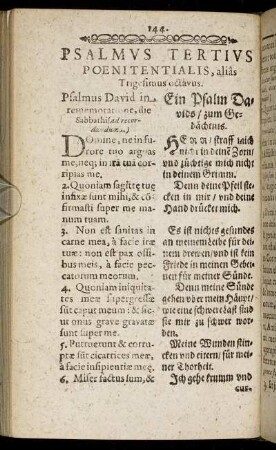 144.
PSALMVS TERTIVS
POENITENTIALIS, aliàs
Trigesimus octavus.
Psalmus David in
rememoratione, die
Sabbathi (ad recor-
dandum.)
DOmine, ne in fu-
rore tuo arguas
me, neq; in ira tuâ cor-
ripias me.
2. Quoniam sagittę tuę
infixæ sunt mihi, & cō-
firmasti super me ma-
num tuam.
3. Non est sanitas in
carne mea, à facie iræ
tuæ: non est pax ossi-
bus meis, à facie pec-
catorum meorum.
4. Quoniam iniquita-
tes meæ supergressæ
sūt caput meum: & si-
cut onus grave gravatæ
sunt super me.
5. Putruerunt & corru-
ptæ sūt cicatrices meæ,
à facie insipientiæ meę.
6. Miser factus sum, &
Ein Psalm Da-
vids / zum Ge-
dächtnus.
HErr / straff mich
nicht in deine Zorn /
vnd züchtige mich nicht
in deinem Grimm.
Denn deine Pfeil ste-
cken in mir / vnd deine
Hand drücket mich.
Es ist nichts gesundes
an meinem Leibe für dei-
nem drewen / vnd ist kein
Friede in meinen Gebei-
nen für meiner Sünde.
Denn meine Sünde
gehen vber mein Häupt /
wie eine schwere Last sind
sie mir zu schwer wor-
den.
Meine Wunden stin-
cken vnd eitern / für mei-
ner Thorheit.
Ich gehe krumm vnd
cur-